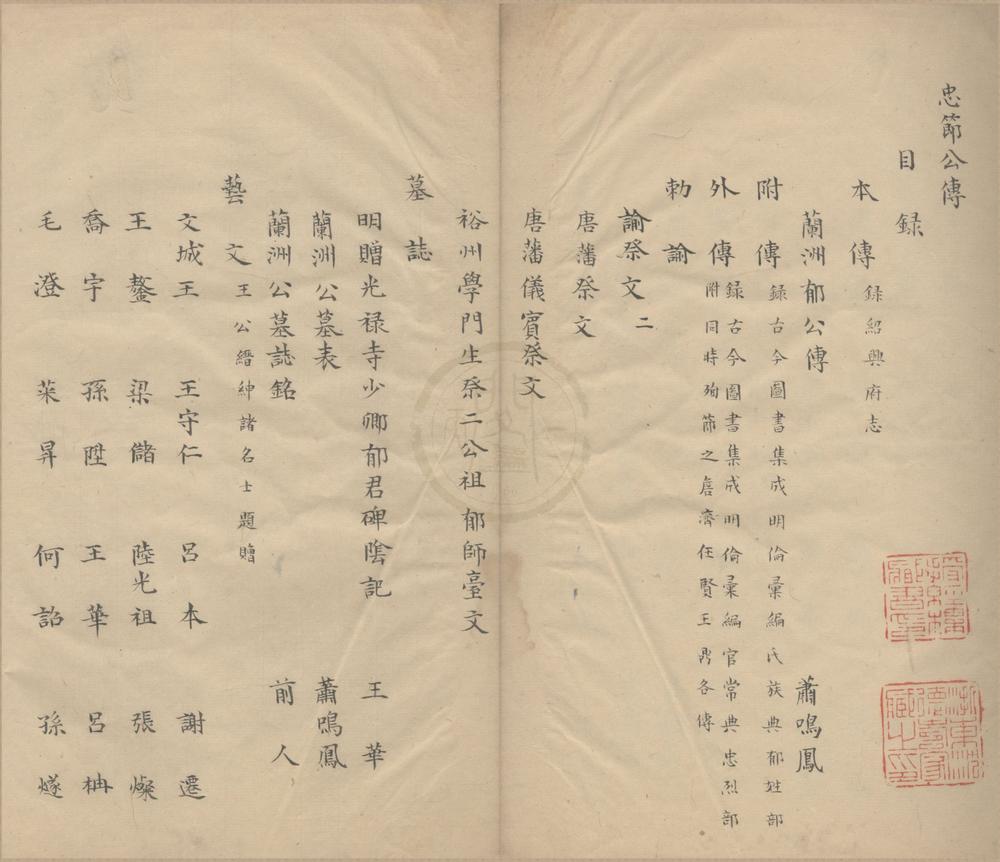 忠節公傳
目錄
本傳 録紹興府志
蘭洲郁公傳 蕭鳴鳳
附傳 録古今圖書集成明倫彙編氏族典郁姓部
外傳 録古今圖書集成明倫彙編官常典忠烈部
附同時殉節之詹濟任賢王鼎各傳
勅諭
諭祭文二
唐藩祭文
唐藩儀賓祭文
裕州學門生祭二公祖郁師臺文
墓誌
明贈光禄寺少卿郁君碑陰記 王華
蘭洲公墓表 蕭鳴鳳
蘭洲公墓誌銘 前人
藝文 王公縉紳諸名士題贈
文城王 王守仁 呂本 謝遷
王鏊 梁儲 陸光祖 張燦
喬宇 孫陞 王華 呂柟
毛澄 葉昇 何詔 孫燧